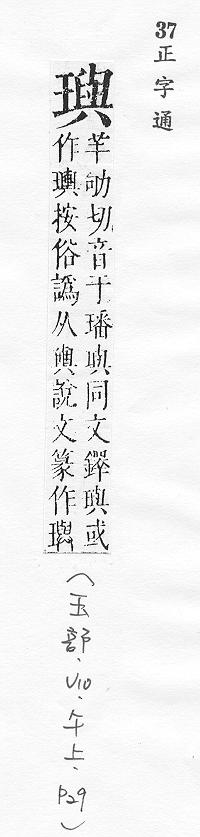 37 正字通
璵
羊劬切音于璠璵同文鐸璵或
作璵按俗譌从輿說文篆作璵
(玉部、V10、午上、P29)